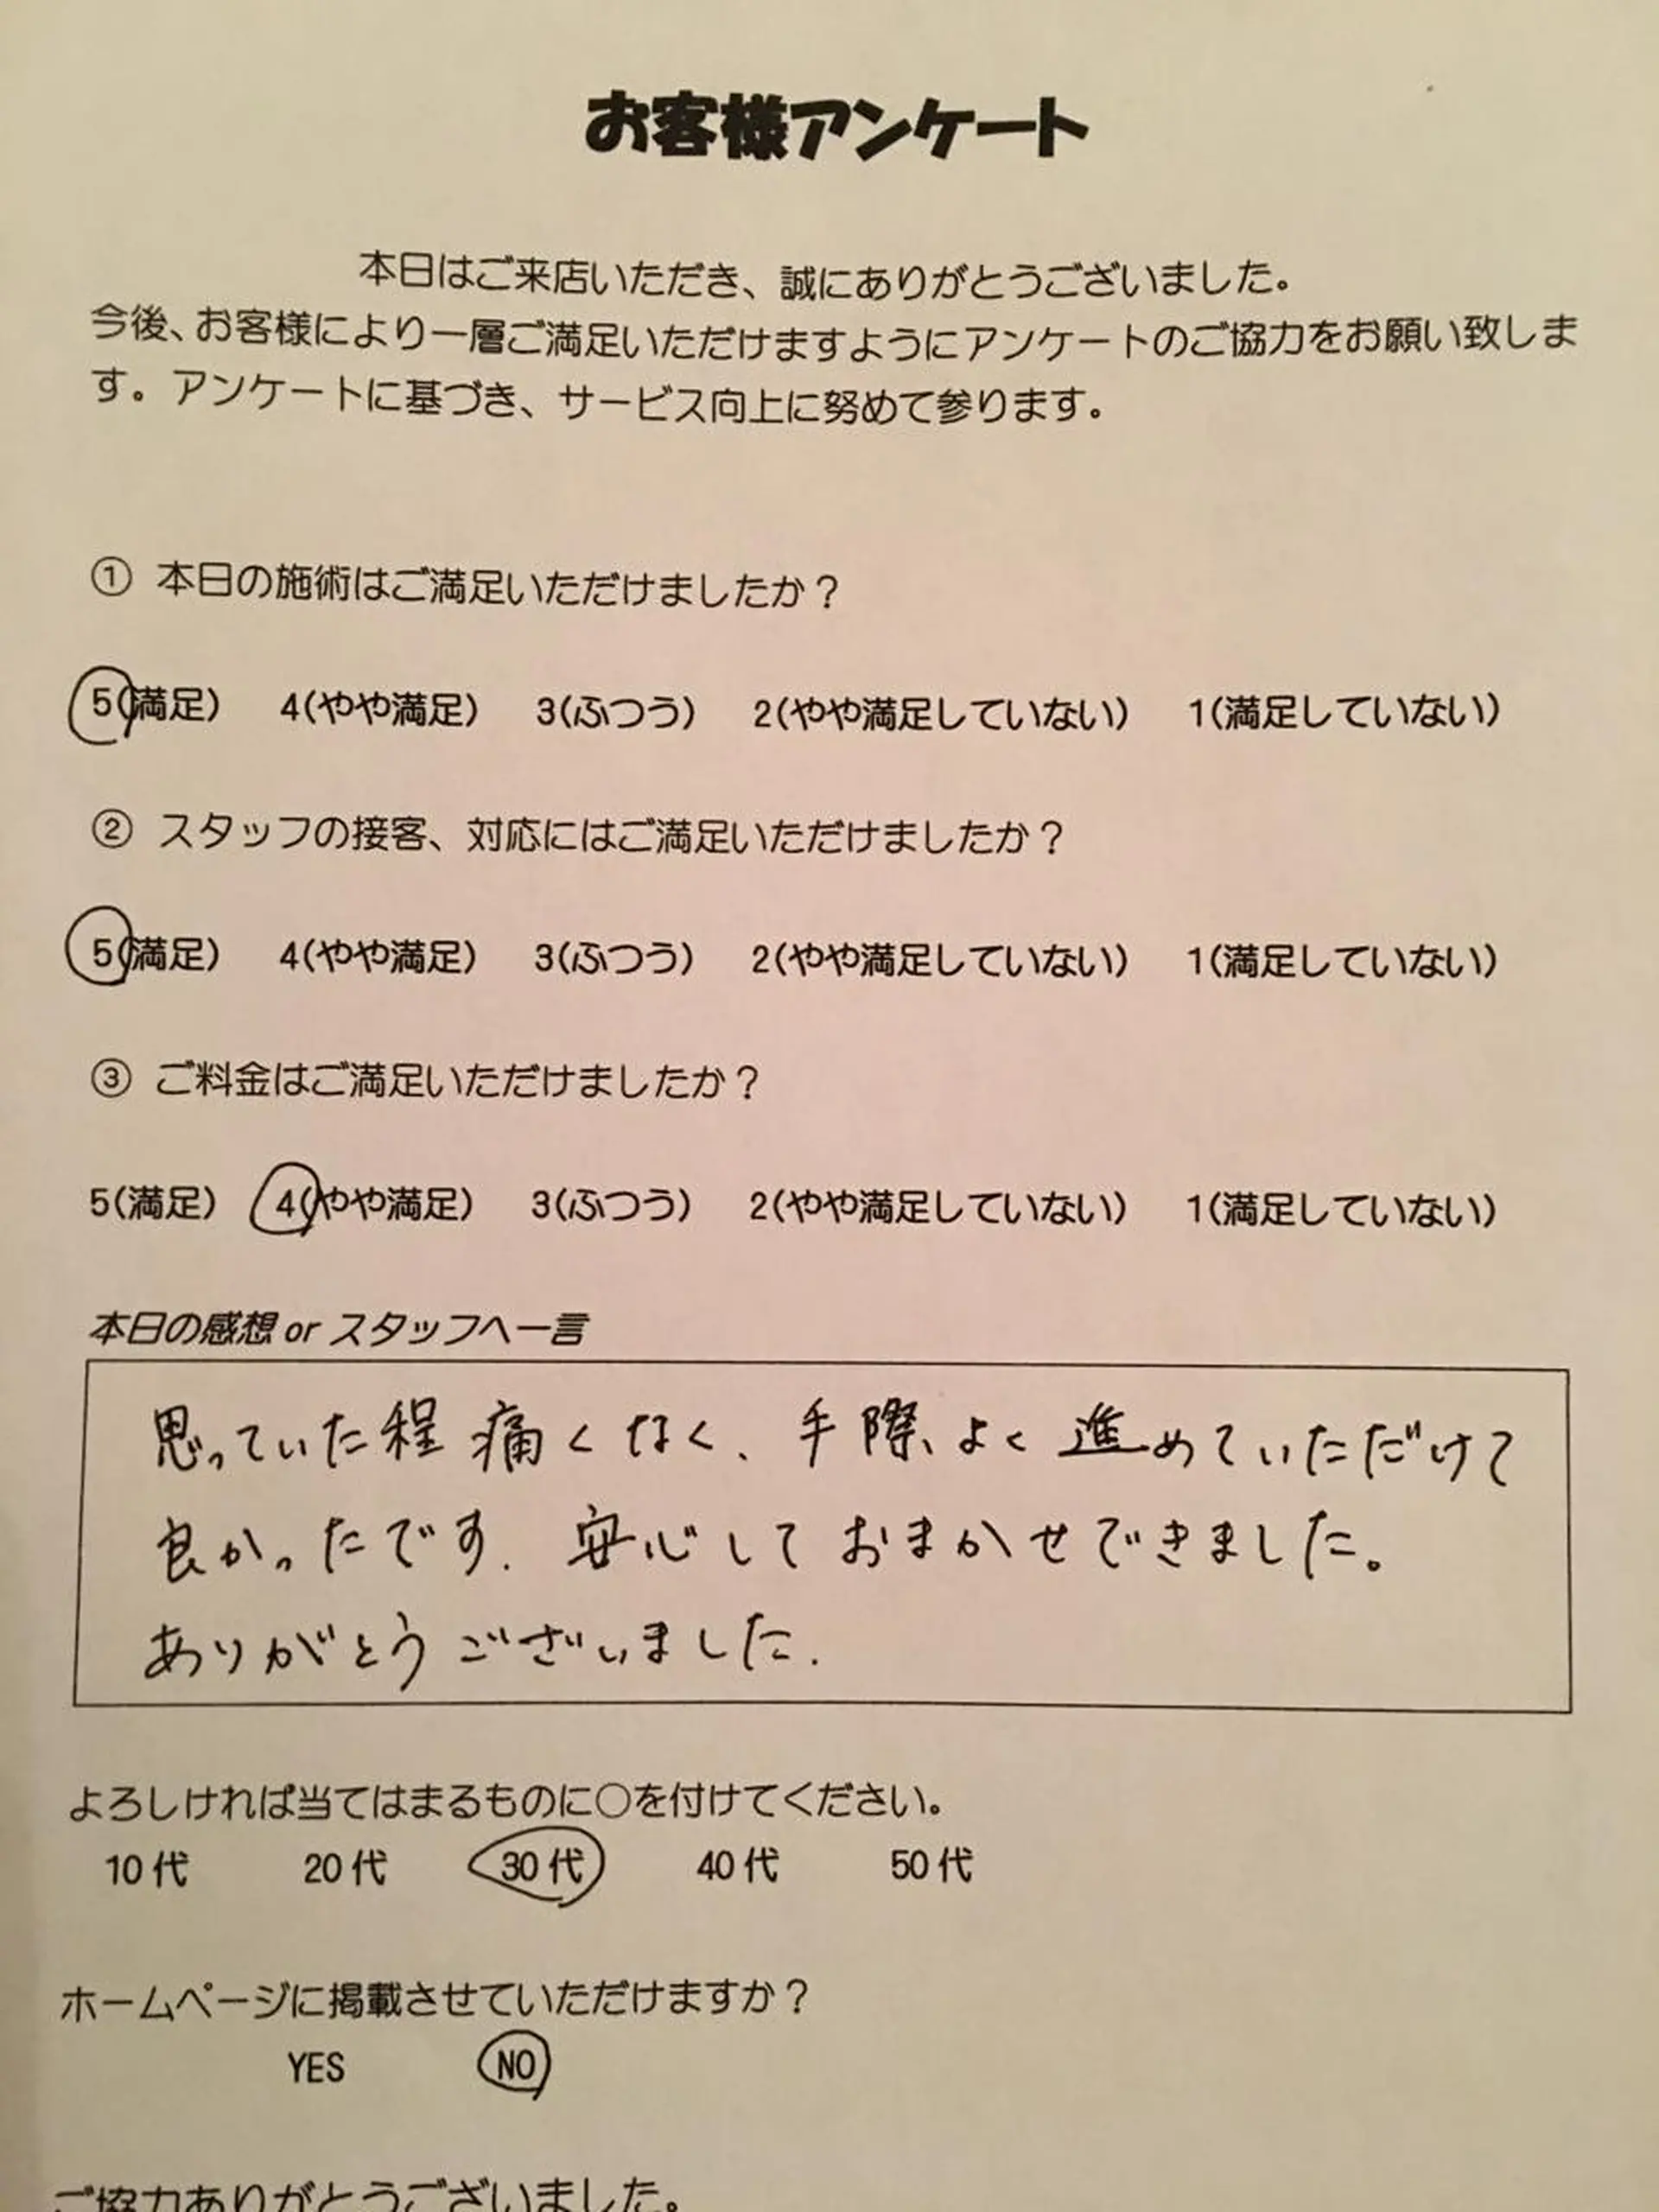 お客様アンケート
本日はご来店いただき、誠にありがとうございました。
今後、お客様により一層ご満足いただけますようにアンケートのご協力をお願い致しま
す。アンケートに基づき、サービス向上に努めて参ります。
① 本日の施術はご満足いただけましたか？
5(満足) 4(やや満足) 3(ふつう) 2(やや満足していない) 1(満足していない)
② スタッフの接客、対応にはご満足いただけましたか？
5(満足) 4(やや満足) 3(ふつう) 2(やや満足していない) 1(満足していない)
③ ご料金はご満足いただけましたか？
5(満足) 4(やや満足) 3(ふつう) 2(やや満足していない) 1(満足していない)
本日の感想 or スタッフへ一言
思っていた程痛くなく、手際よく進めていただけて
良かったです. 安心しておまかせできました。
ありがとうございました.
よろしければ当てはまるものに○を付けてください。
10代 20代 30代 40代 50代
ホームページに掲載させていただけますか？
YES NO
ご協力ありがとうございました。